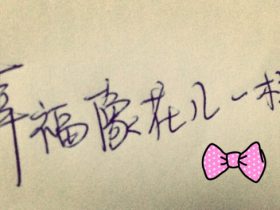 幸福像花儿一样